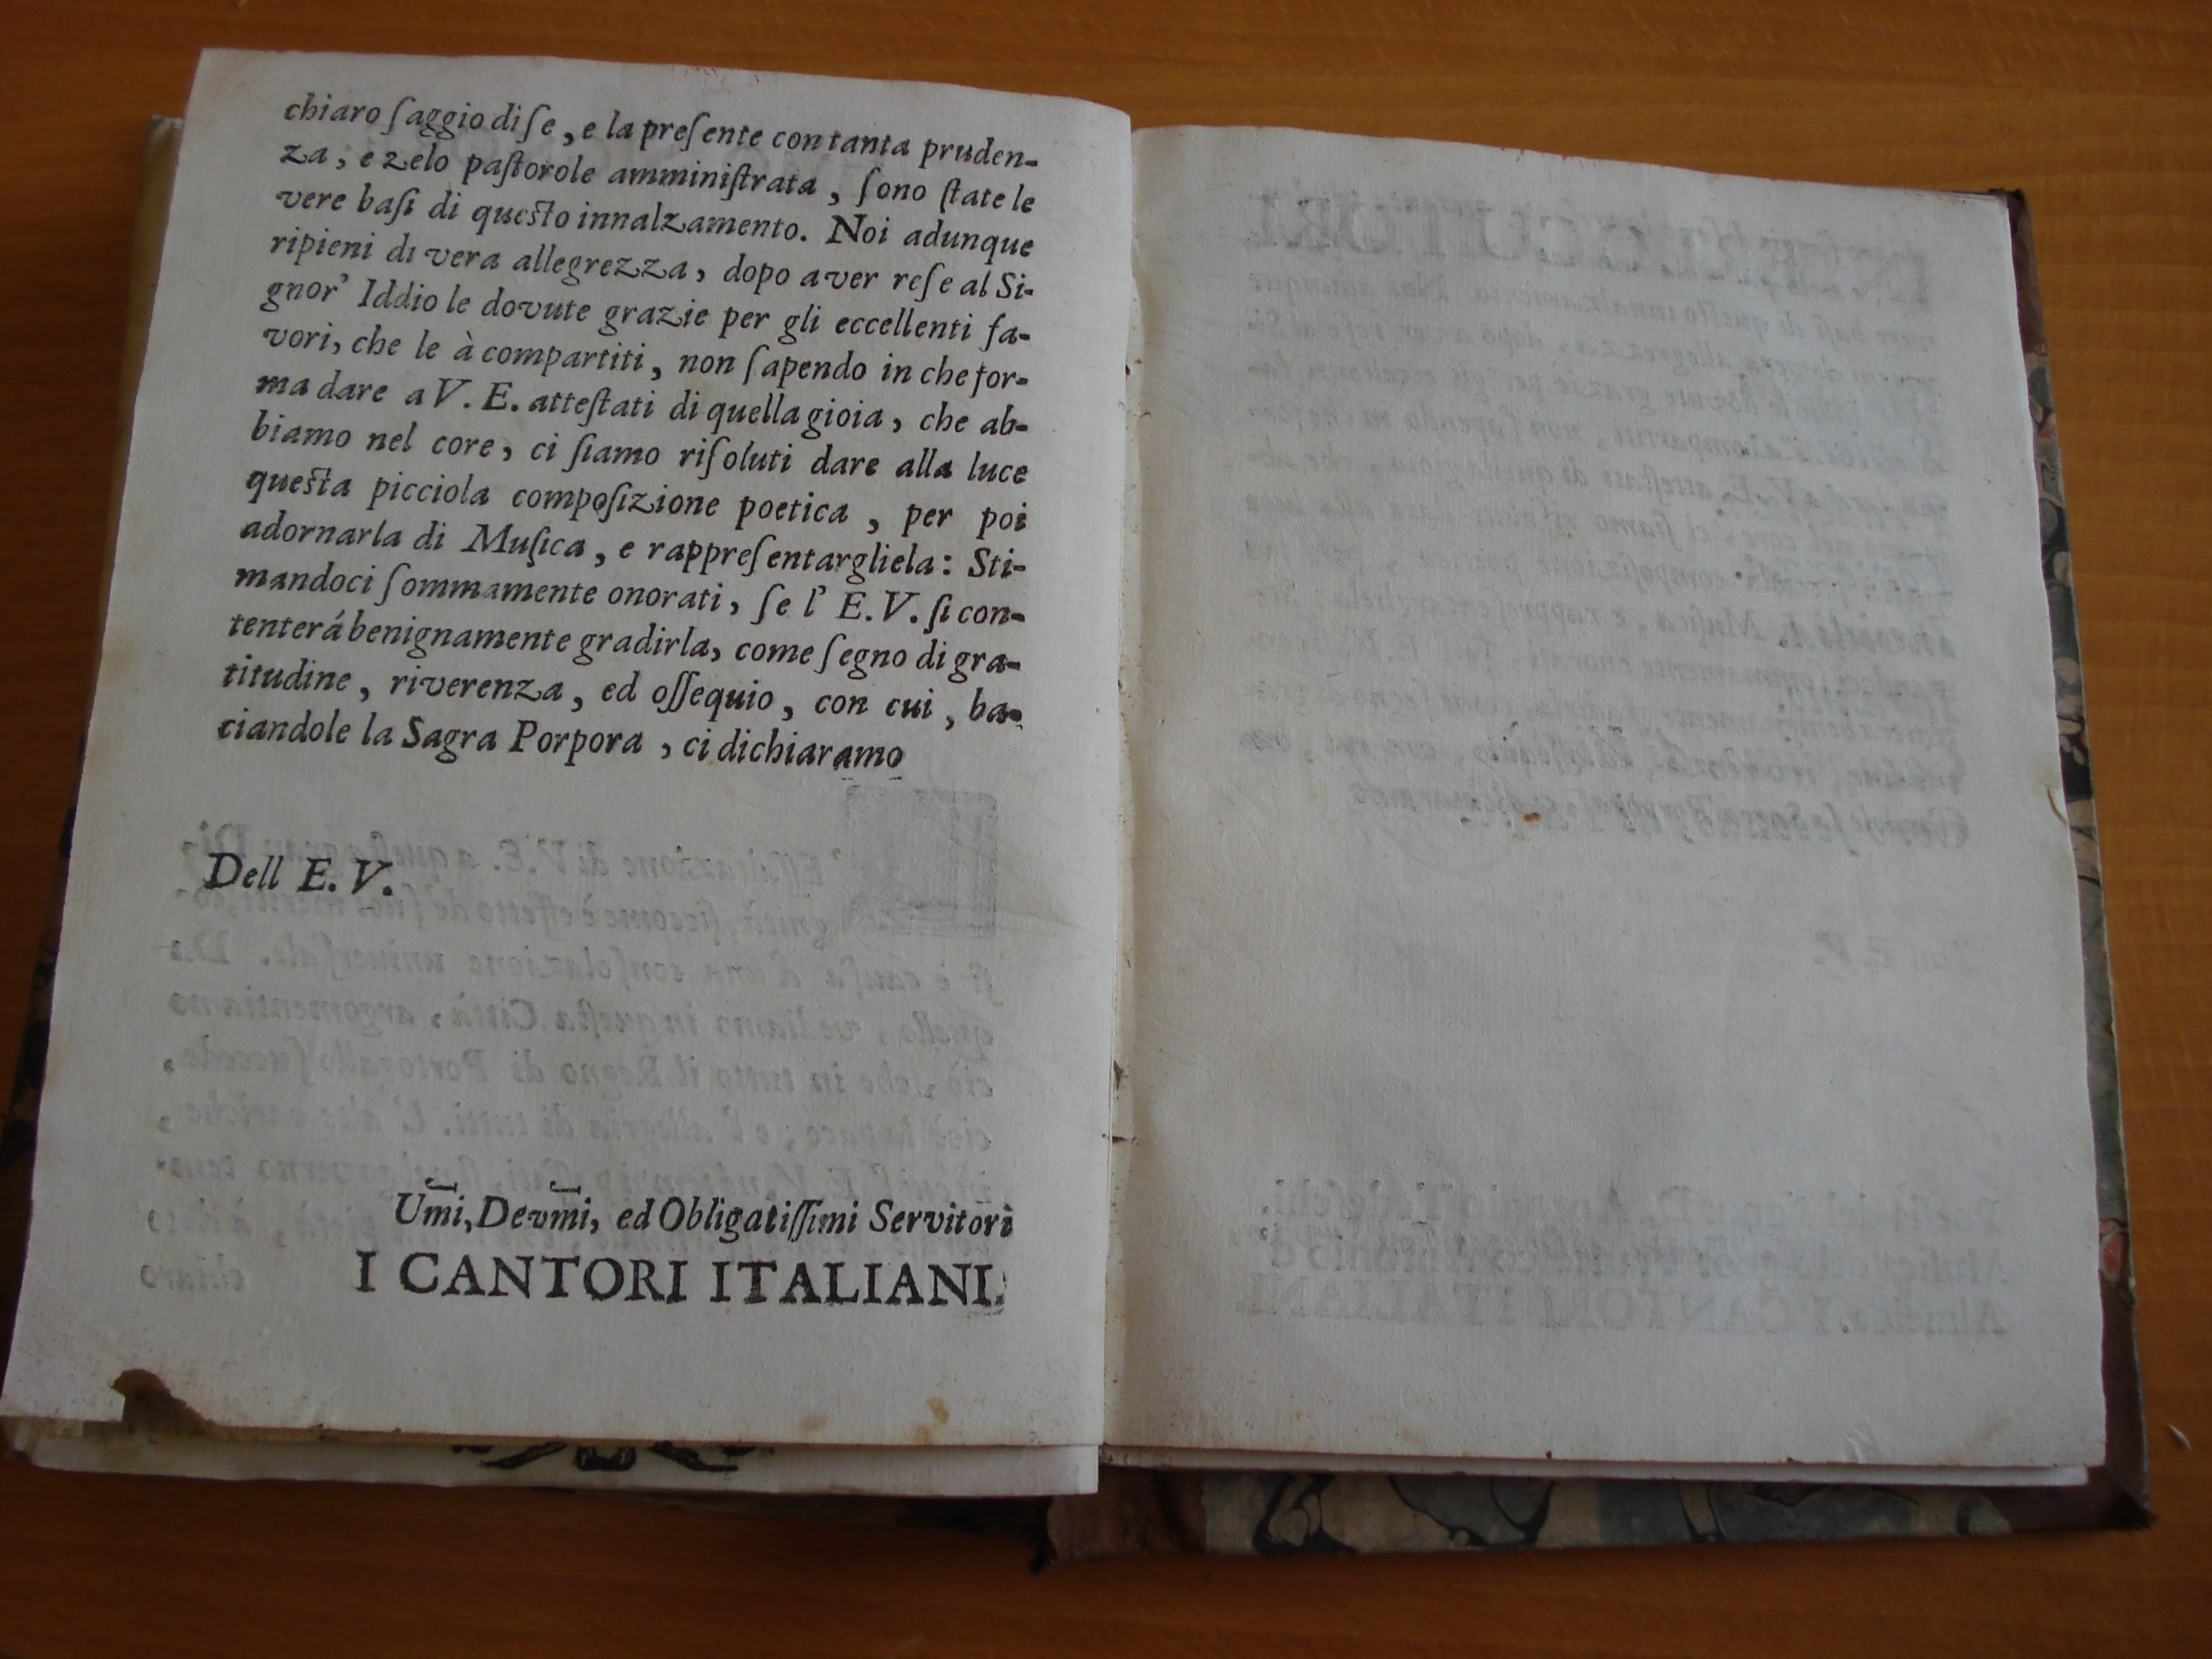 chiaro ſaggio di ſe, e la preſente con tanta pruden-
za, e zelo paſtorole amminiſtrata, ſono ſtate le
vere baſi di queſto innalzamento. Noi adunque
ripieni di vera allegrezza, dopo aver reſe al Si-
gnor' Iddio le dovute grazie per gli eccellenti fa-
vori, che le à compartiti, non ſapendo in che for-
ma dare a V. E. atteſtati di quella gioia, che ab-
biamo nel core, ci ſiamo riſoluti dare alla luce
queſta picciola compoſizione poetica, per poi
adornarla di Muſica, e rappreſentargliela: Sti-
mandoci ſommamente onorati, ſe l' E. V. ſi con-
tenterá benignamente gradirla, come ſegno di gra-
titudine, riverenza, ed oſſequio, con cui, ba-
ciandole la Sagra Porpora, ci dichiaramo
Dell E. V.
Um̄i, Devm̄i, ed Obligatiſſimi Servitori
I CANTORI ITALIANI.